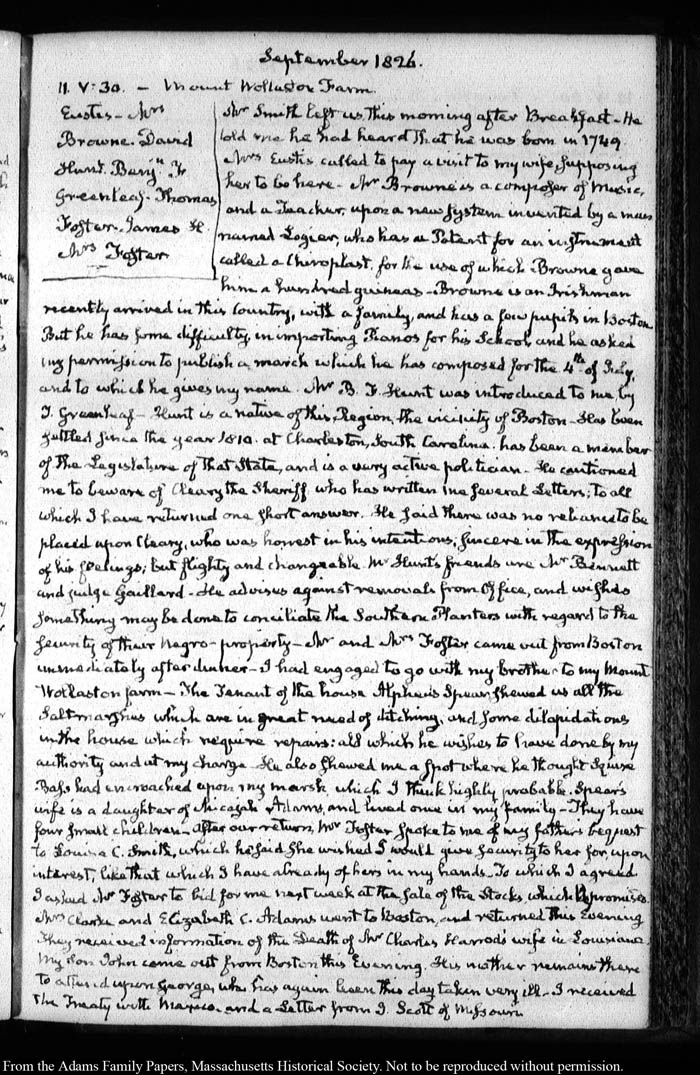 September 1826.
11. V:30. — Mount Wollaston Farm.
Eustis - Mrs
Browne. David
Hunt. Benjn. F.
Greenleaf. Thomas
Foster. James H.
Mrs Foster
Mr Smith left us this morning after Breakfast - He
told me he had heard that he was born in 1749
Mrs Eustis called to pay a visit to my wife, supposing
her to be here - Mr Browne is a composer of Music,
and a Teacher, upon a new System invented by a man
named Logier, who has a Patent for an instrument
called a Chiroplast, for the use of which Browne gave
him a hundred guineas - Browne is an Irishman
recently arrived in this Country, with a family, and has a few pupils in Boston
But he has some difficulty, in importing Pianos for his School, and he asked
my permission to publish a march which he has composed for the 4th of July,
and to which he gives my name. Mr B. F. Hunt was introduced to me by
T. Greenleaf - Hunt is a native of this Region, the vicinity of Boston - Has been
settled since the year 1810. at Charleston, South Carolina. has been a member
of the Legislature of that State, and is a very active politician - He cautioned
me to beware of Cleary the Sheriff who has written me several Letters; to all
which I have returned one short answer. He said there was no reliance to be
placed upon Cleary, who was honest in his intentions, sincere in the expression
of his feelings, but flighty and changeable. Mr Hunt's friends are Mr Bennett
and judge Gaillard - He advises against removals from Office, and wishes
something may be done to conciliate the Southern Planters with regard to the
security of their Negro-property - Mr and Mrs Foster came out from Boston
immediately after dinner - I had engaged to go with my brother to my Mount
Wollaston farm - The Tenant of the house Alpheus Spear shewed us all the
Salt marshes which are in great need of ditching, and some dilapidations
in the house which require repairs: all which he wishes to have done by my
authority and at my charge - He also shewed me a spot where he thought Squire
Bass had encroached upon my marsh, which I think highly probable. Spear's
wife is a daughter of Micajah Adams, and lived once in my family - They have
four small children - After our return, Mr Foster spoke to me of my father's bequest
to Louisa C. Smith, which he said she wished I would give security to her for upon
interest, like that which I have already of hers in my hands. To which I agreed
I asked Mr Foster to bid for me next week at the sale of the Stocks, which he promised.
Mrs Clarke and Elizabeth C. Adams went to Boston, and returned this Evening
They received information of the Death of Mr Charles Harrod's wife in Louisiana.
My Son John came out from Boston this Evening. His mother remains there
to attend upon George, who has again been this day taken very ill - I received
the Treaty with Mexico. and a Letter from J. Scott of Missouri
From the Adams Family Papers, Massachusetts Historical Society. Not to be reproduced without permission.